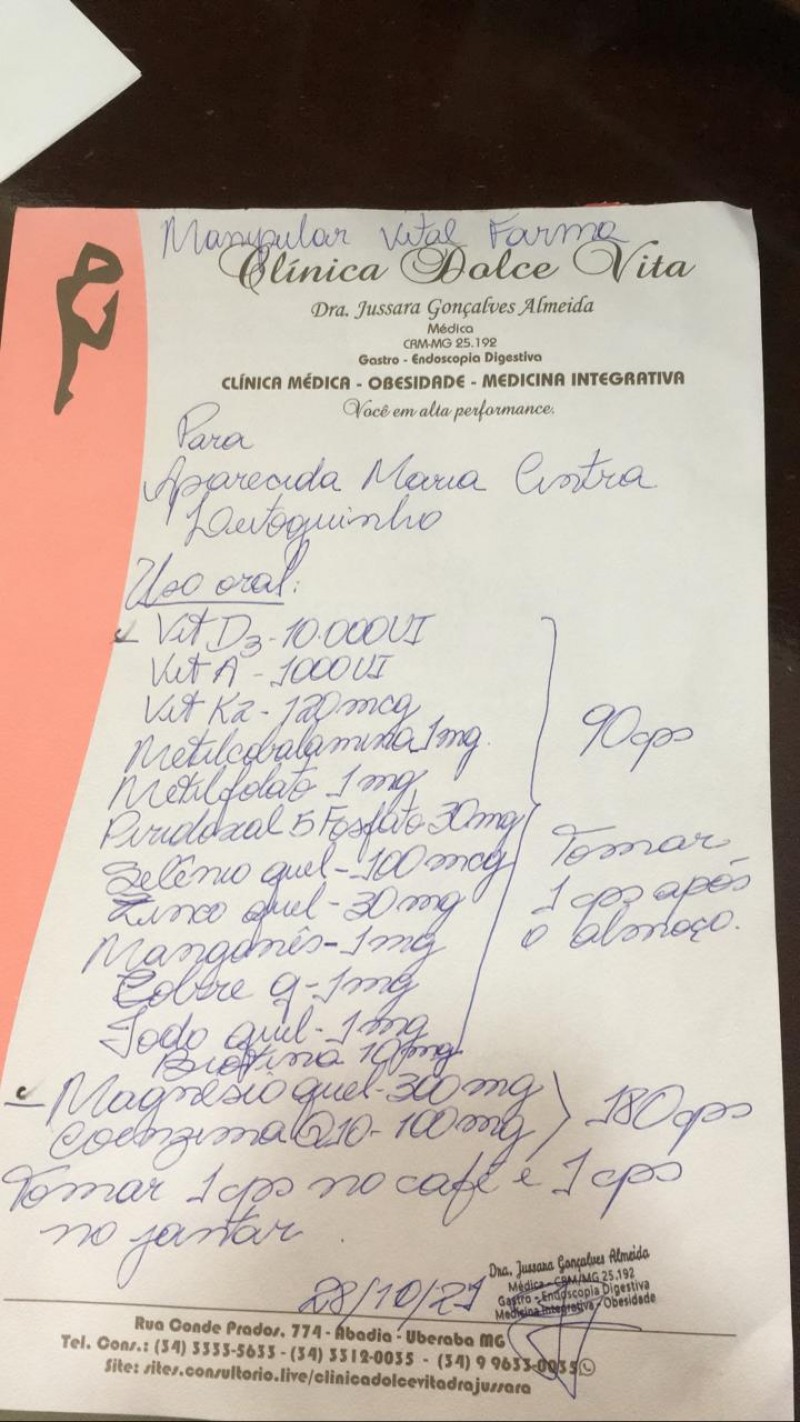 Manipular Vital Farma
Clínica Dolce Vita
Dra. Jussara Gonçalves Almeida
Médica
CRM-MG 25.192
Gastro - Endoscopia Digestiva
CLÍNICA MÉDICA - OBESIDADE - MEDICINA INTEGRATIVA
Você em alta performance.
Para
Aparecida Maria Cintra
Uso oral:
Vit D3 - 10.000UI
Vit A - 1000UI
Vit K2 - 120mcg
90cps
Metilcobalamina 1mg
Metilfolato 1mg
Piridoxal 5 Fosfato 30mg
Selênio quel - 100mcg
Zinco quel - 30mg
Manganês - 1mg
Cobre q - 1mg
Iodo quel - 1mg
Biotina 10mg
Tomar
1 cps após
o almoço.
Magnésio quel - 300mg
Coenzima Q10 - 100mg
180cps
Tomar 1 cps no café e 1 cps
no jantar.
28/10/21
Dra. Jussara Gonçalves Almeida
Médica - CRM/MG 25.192
Gastro - Endoscopia Digestiva
Medicina Integrativa - Obesidade
Rua Conde Prados, 774 - Abadia - Uberaba MG
Tel. Cons.: (34) 3333-5633 - (34) 3312-0035 - (34) 9 9633-0035
Site: sites.consultorio.live/clinicadolcevitadrajussara